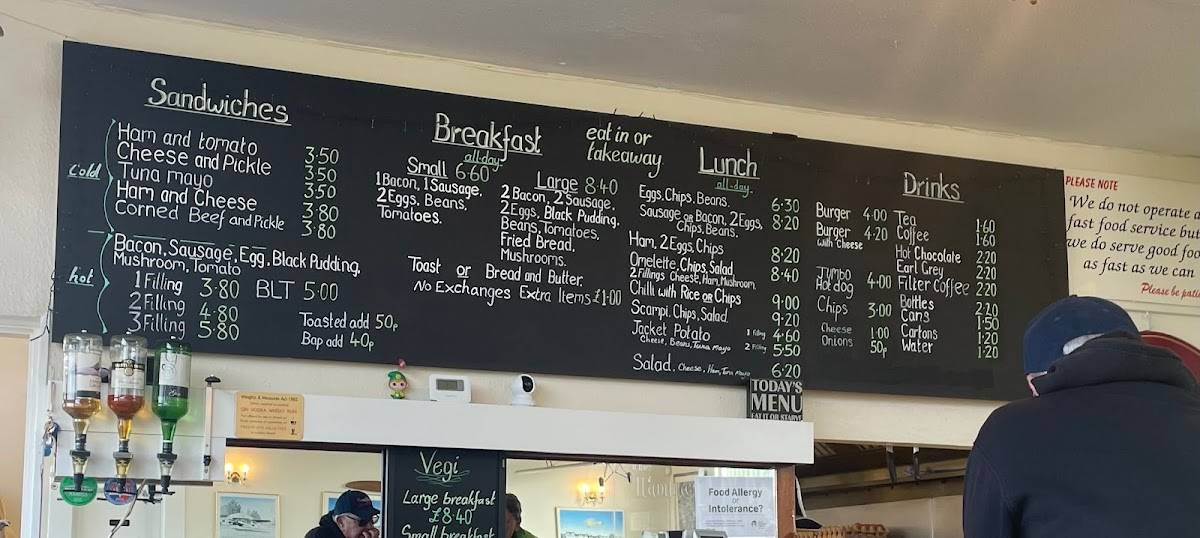 Sandwiches
Cold
Ham and tomato 3.50
Cheese and Pickle 3.50
Tuna mayo 3.50
Ham and Cheese 3.80
Corned Beef and Pickle 3.80
hot
Bacon, Sausage, Egg, Black Pudding,
Mushroom, Tomato
1 Filling 3.80
2 Filling 4.80
3 Filling 5.80
BLT 5.00
Toasted add 50p
Bap add 40p
Breakfast
all day
eat in or
takeaway
Small 6.60
1 Bacon, 1 Sausage,
2 Eggs, Beans,
Tomatoes.
Large 8.40
2 Bacon, 2 Sausage,
2 Eggs, Black Pudding,
Beans, Tomatoes,
Fried Bread,
Mushrooms.
Toast or Bread and Butter.
No Exchanges Extra Items £1.00
Lunch
all day.
Eggs, Chips, Beans. 6.30
Sausage or Bacon, 2 Eggs, 8.20
Chips, Beans.
Ham, 2 Eggs, Chips 8.20
Omelette, Chips, Salad 8.40
2 Fillings Cheese, Ham, Mushroom
Chilli with Rice or Chips 9.00
Scampi, Chips, Salad 9.20
Jacket Potato 1 Filling 4.60
Cheese, Beans, Tuna Mayo 2 Filling 5.50
Salad. Cheese, Ham, Tuna Mayo 6.20
Drinks
Burger 4.00
Burger 4.20
with Cheese
Jumbo
Hot dog 4.00
Chips 3.00
Cheese 1.00
Onions 50p
Tea 1.60
Coffee 1.60
Hot Chocolate 2.20
Earl Grey 2.20
Filter Coffee 2.20
Bottles 2.20
Cans 1.50
Cartons 1.20
Water 1.20
PLEASE NOTE
We do not operate a
fast food service but
we do serve good foo
as fast as we can
Please be pati
TODAY'S
MENU
EAT IT OR STARVE
Weights & Measures Act 1963
Vegi
Large breakfast
£8.40
Small breakfast
Food Allergy
or
Intolerance?